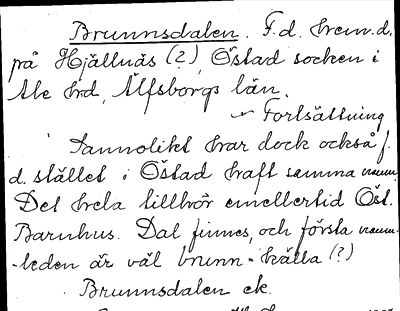 Brunnsdalen. F.d. hem.d.
på Hjällnäs (?), Östad socken i
Ale hd, Älfsborgs län.
Fortsättning
Sannolikt har dock också f.
d. stället i Östad haft samma namn.
Det hela tillhör emellertid Öst.
Barnhus. Dal finnes, och första namn-
-leden är väl brunn = källa (?)
Brunnsdalen ek.